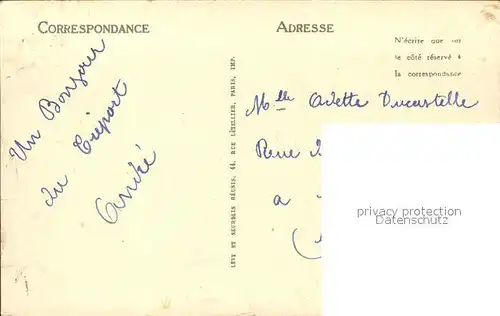 CORRESPONDANCE
ADRESSE
N'écrire que sur
le côté réservé à
la correspondance
Un Bonjour
du Tréport
André
LEVY ET NEURDEIN RÉUNIS, 44, RUE LETELLIER, PARIS, IMP.
Mlle Odette Ducastelle
Rue
a
privacy protection
Datenschutz